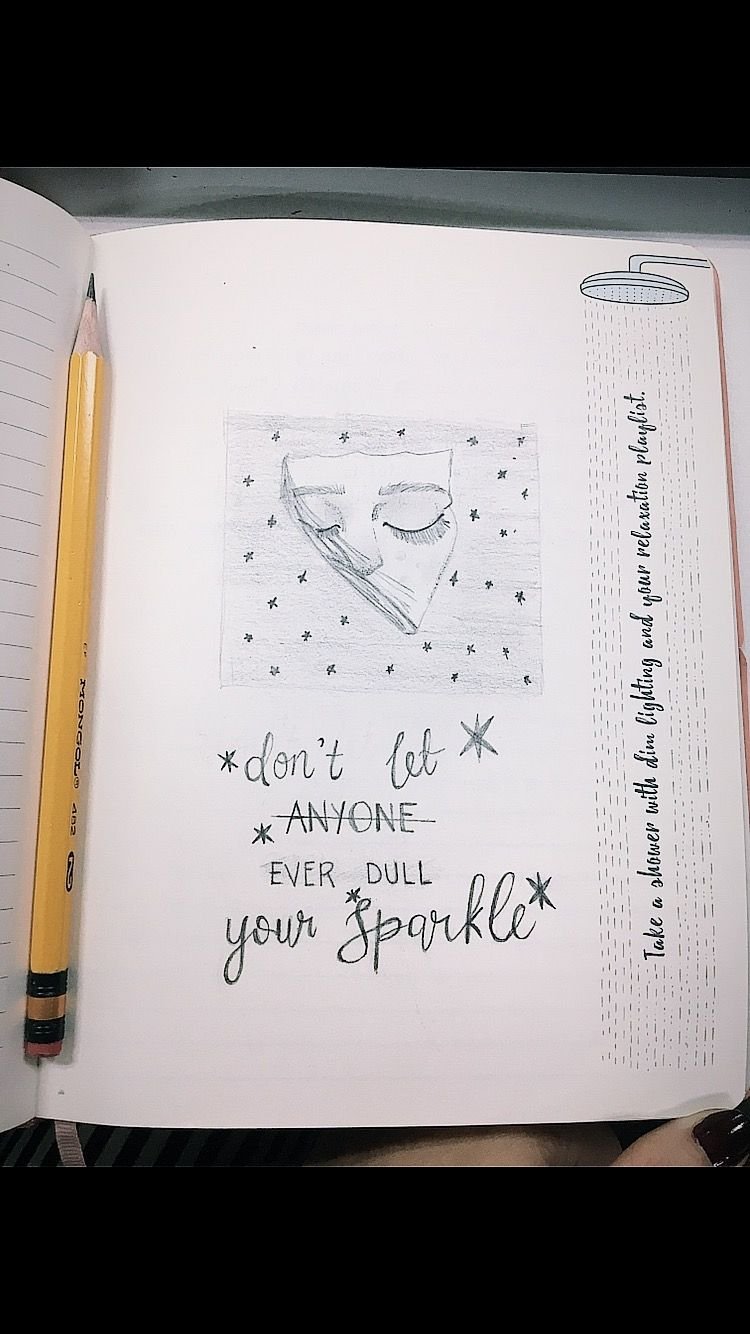 don't let
ANYONE
EVER DULL
your sparkle
Take a shower with dim lighting and your relaxation playlist.
MONGOL® 482
2